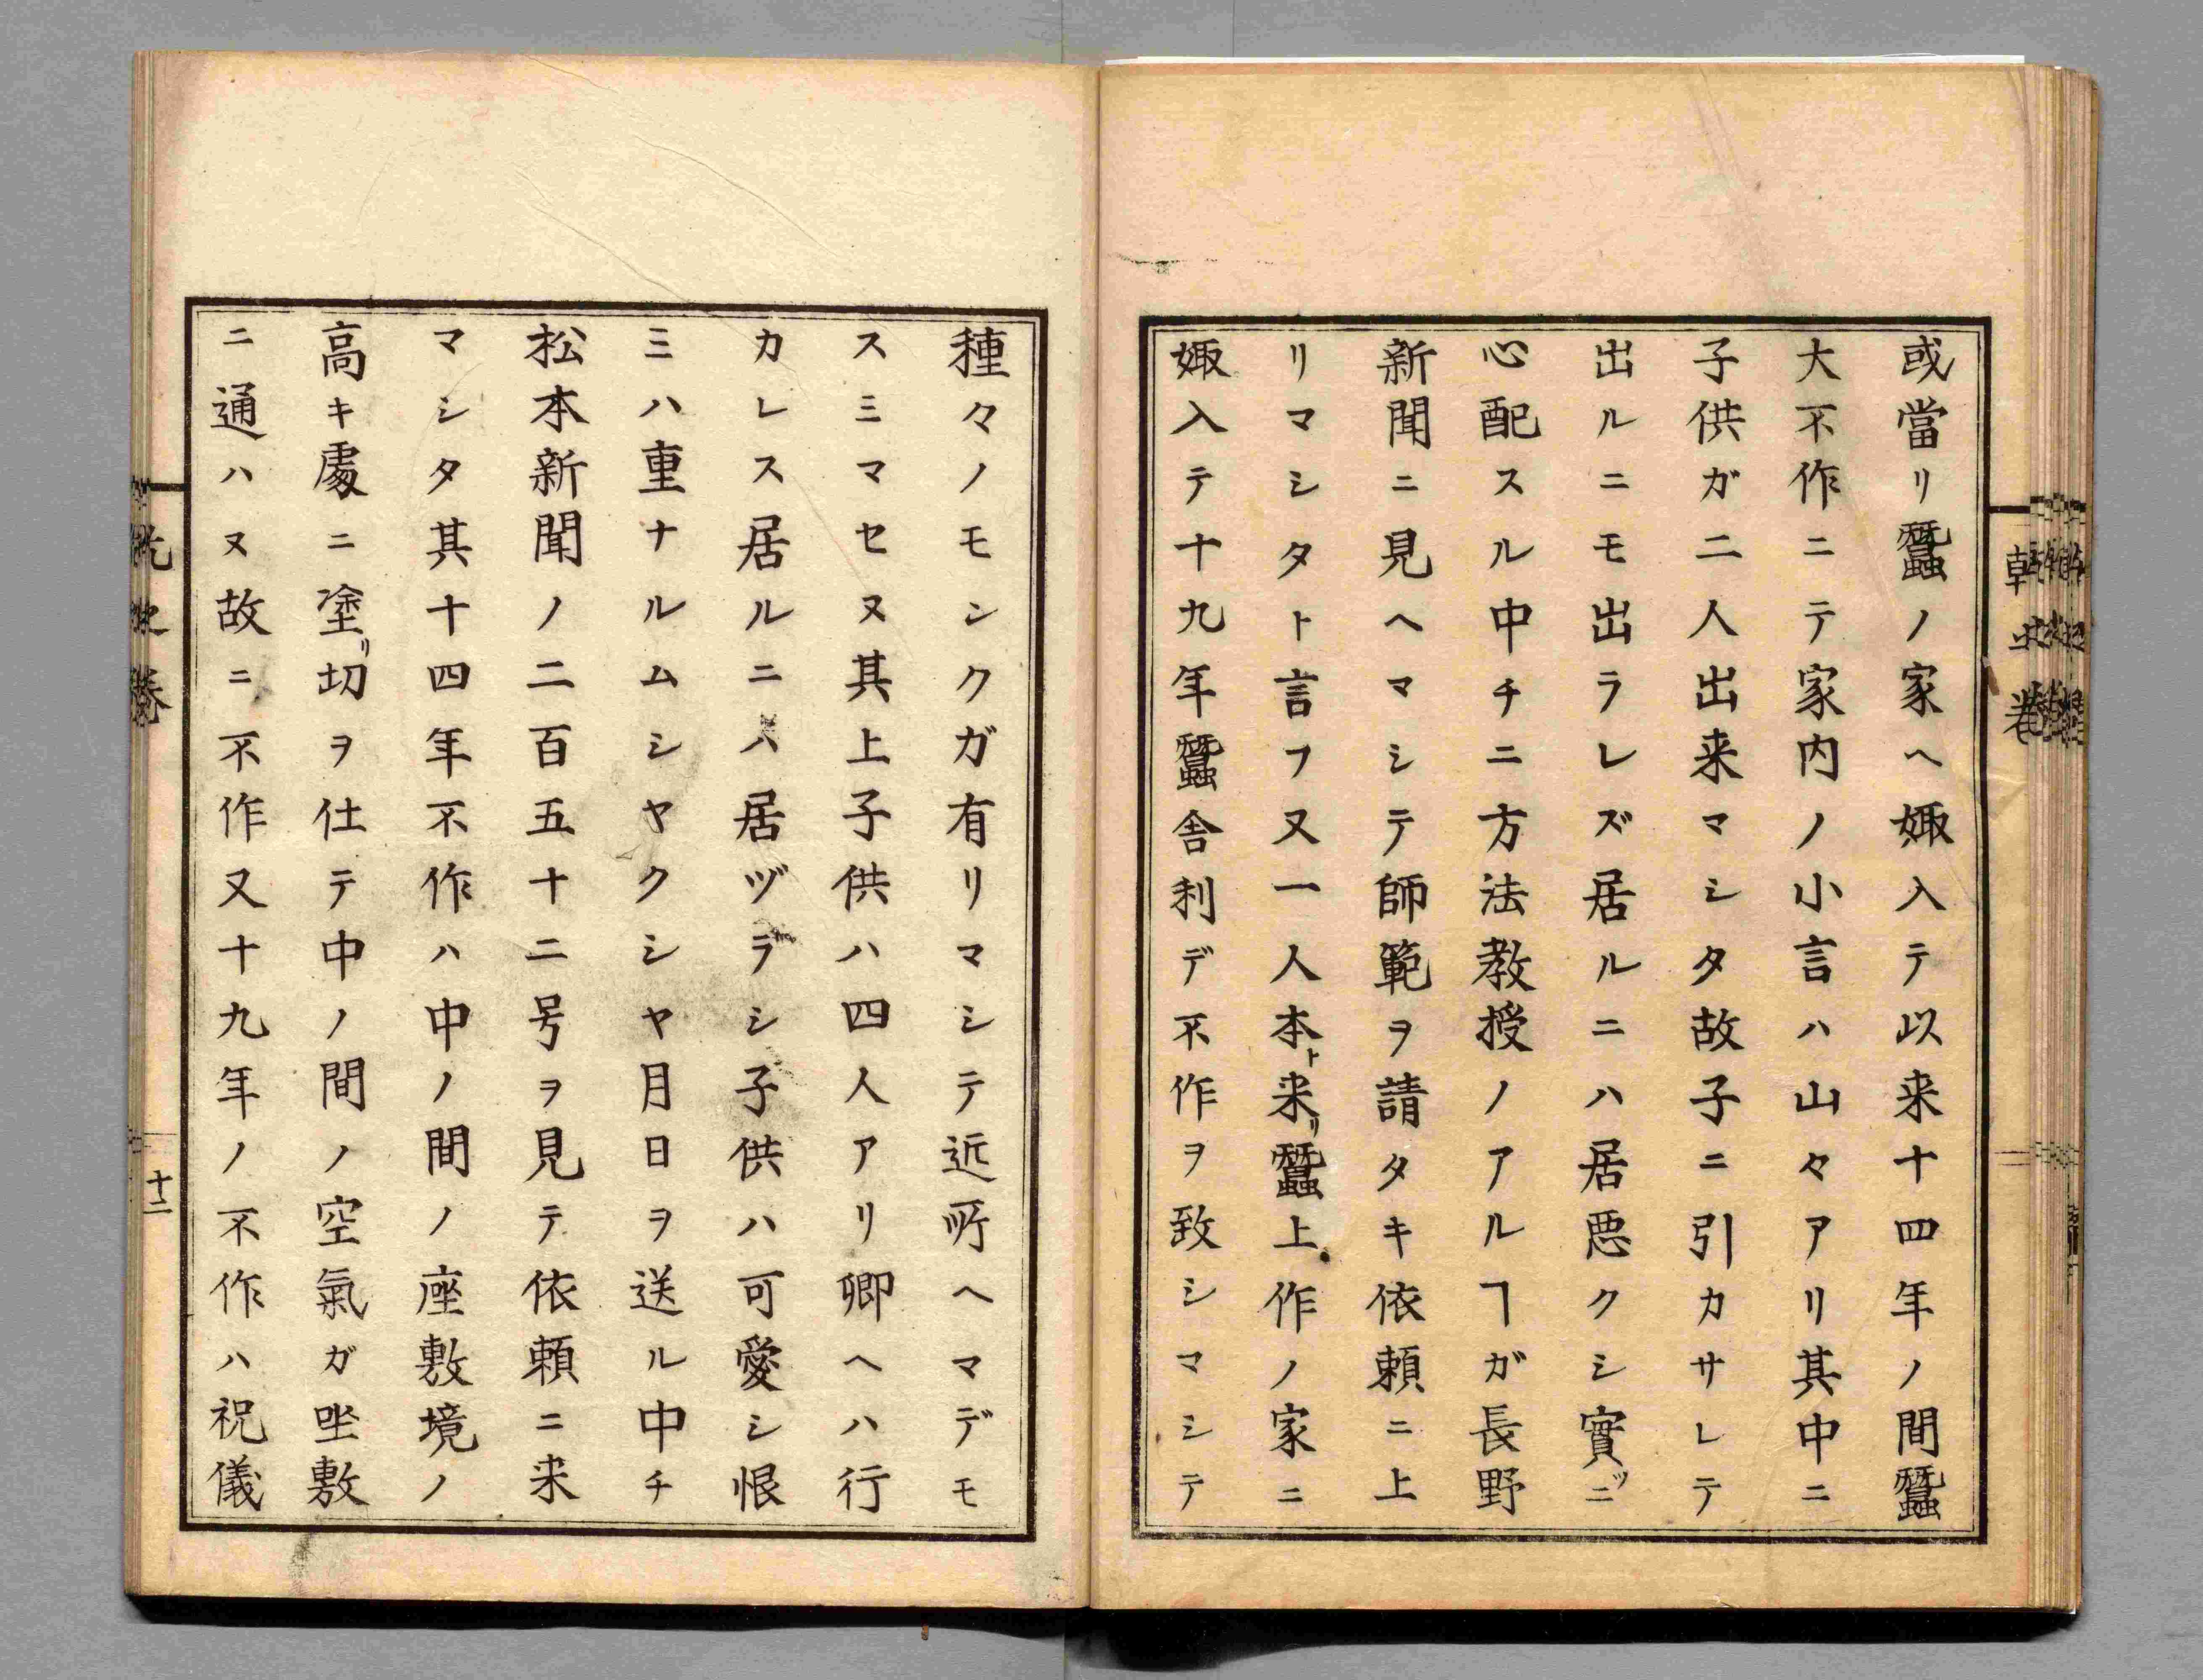 或當リ蠶ノ家ヘ娵入テ以来十四年ノ間蠶
大不作ニテ家内ノ小言ハ山々アリ其中ニ
子供ガ二人出来マシタ故子ニ引カサレテ
出ルニモ出ラレズ居ルニハ居悪クシ實ツニ
心配スル中チニ方法教授ノアルヿガ長野
新聞ニ見ヘマシテ師範ヲ請タキ依頼ニ上
リマシタト言フ又一人本ト来リ蠶上作ノ家ニ
娵入テ十九年蠶舎利デ不作ヲ致シマシテ
種々ノモンクガ有リマシテ近所ヘマデモ
スミマセヌ其上子供ハ四人アリ郷ヘハ行
カレス居ルニハ居ヅラシ子供ハ可愛シ恨
ミハ重ナルムシヤクシヤ月日ヲ送ル中チ
松本新聞ノ二百五十二号ヲ見テ依頼ニ来
マシタ其十四年不作ハ中ノ間ノ座敷境ノ
高キ處ニ塗リ切ヲ仕テ中ノ間ノ空氣ガ坐敷
ニ通ハヌ故ニ不作又十九年ノ不作ハ祝儀
十二